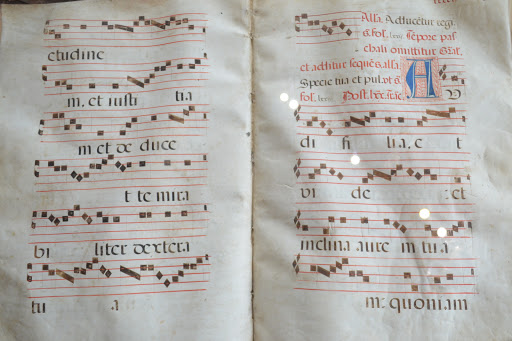 etudine
m. et iusti tia
m et de duce
t te mira
bi liter dextera
tu a
Alla. Adducetur regi.
6. fol. Tēpore pas
chali omittitur
et adđitur seques alla.
Specie tua et pul. ut 6.
fol. Post hec Trac.
A V
di fi lia, e t
vi de et
inclina aure m tua
m: quoniam